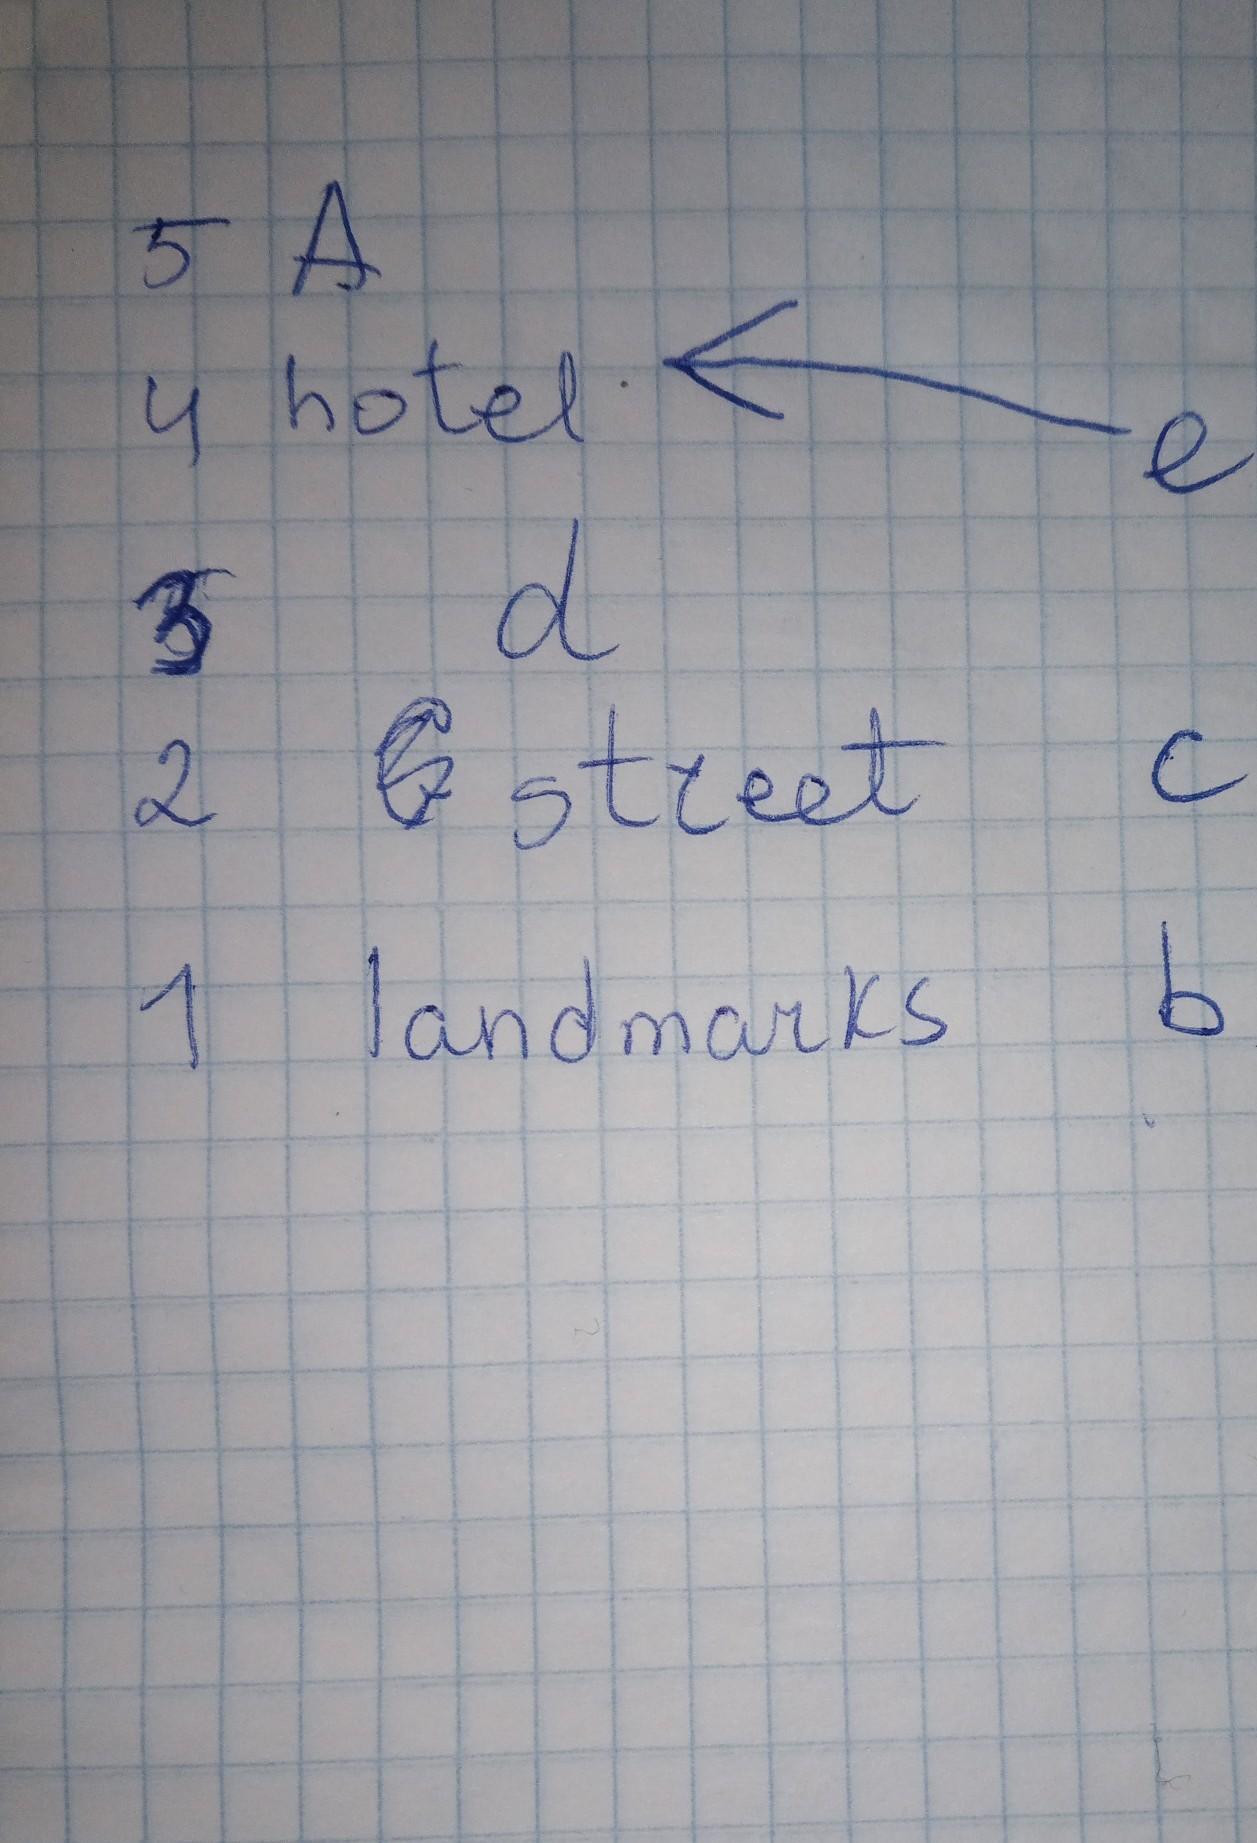 5 A
4 hotel. e
3 d
2 street c
1 landmarks b